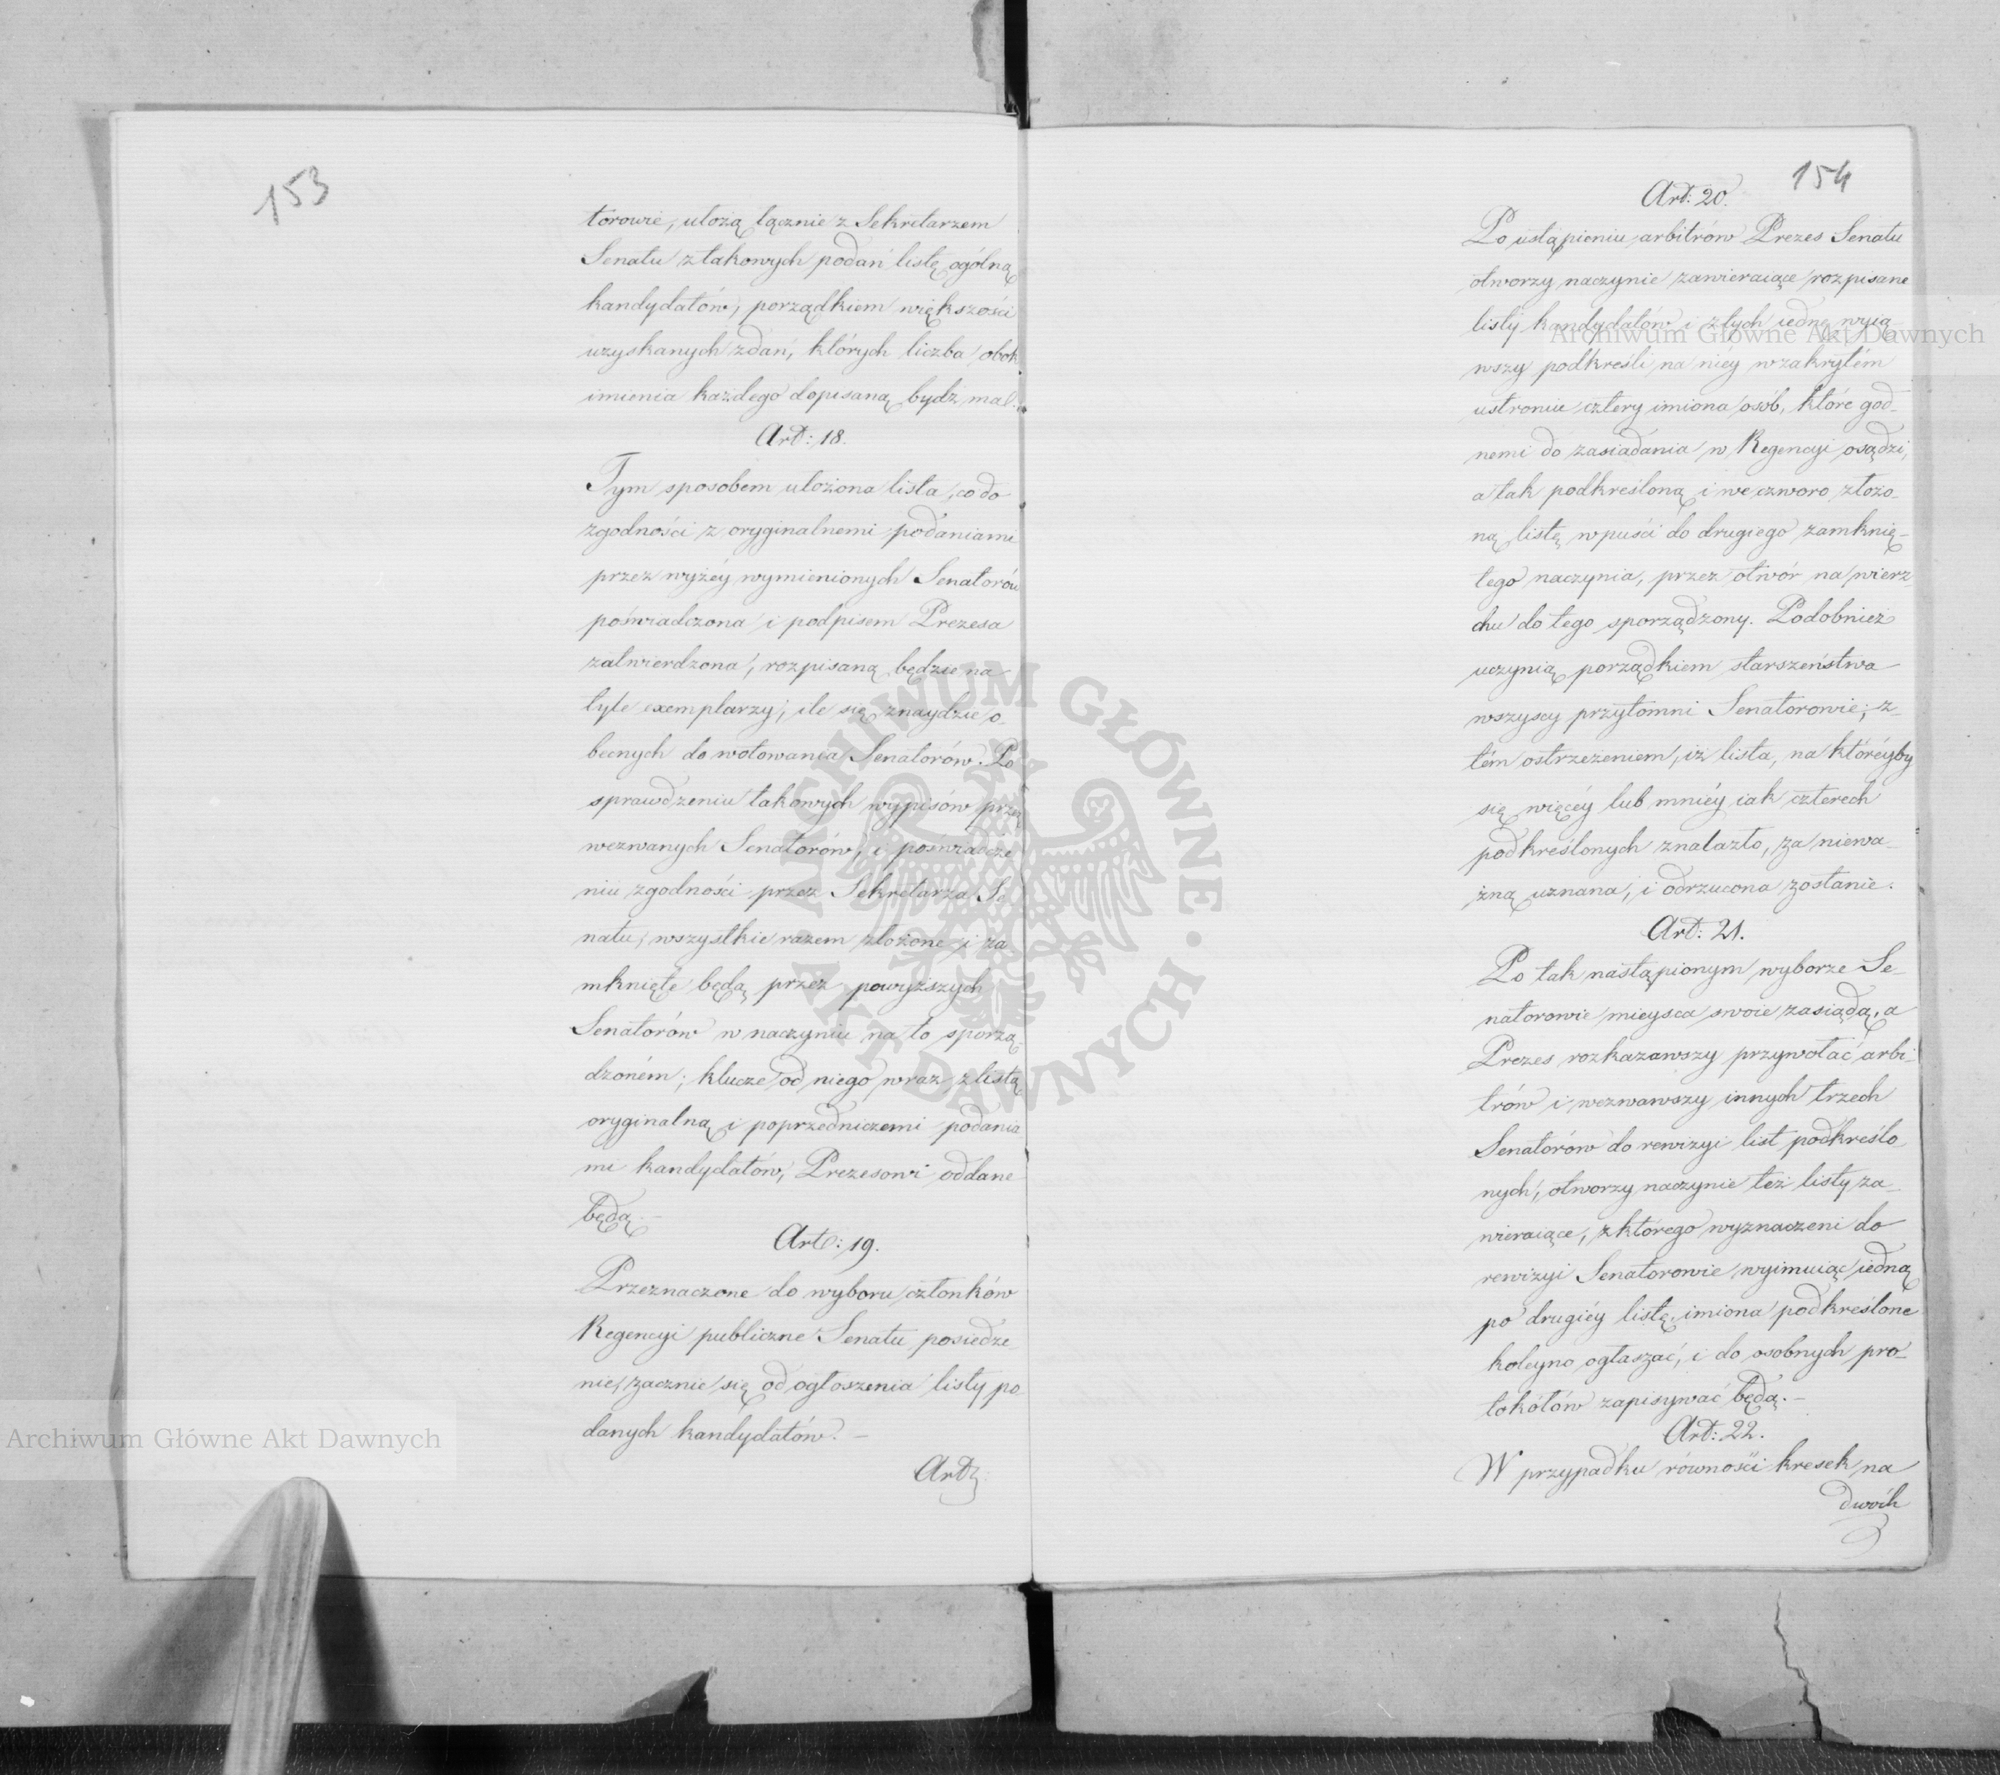 153
torowie, ułożą łącznie z Sekretarzem
Senatu z takowych podań listę ogólną
kandydatów, porządkiem większości
uzyskanych zdań, których liczba obok
imienia każdego dopisaną bydź ma.
Art: 18.
Tym sposobem ułożona lista, co do
zgodności z oryginalnemi podaniami
przez wyżéy wymienionych Senatorów
poświadczona i podpisem Prezesa
zatwierdzona, rozpisaną będzie na
tyle exemplarzy, ile się znaydzie o-
becnych do wotowania Senatorów. Po
sprawdzeniu takowych wypisów przez
wezwanych Senatorów, i poświadcze
niu zgodności przez Sekretarza Se
natu, wszystkie razem złożone i za
mknięte będą przez powyższych
Senatorów w naczyniu na to sporzą
dzoném; klucze od niego wraz z listą
oryginalną i poprzedniczemi podania
mi kandydatów, Prezesowi oddane
będą. —
Art: 19.
Przeznaczone do wyboru członków
Regencyi publiczne Senatu posiedze
nie, zacznie się od ogłoszenia listy po
danych kandydatów. —
Art:
154
Art: 20.
Po ustąpieniu arbitrów Prezes Senatu
otworzy naczynie zawieraiące rozpisane
listy kandydatów i z tych iednę wyią-
wszy podkreśli na niey w zakrytém
ustroniu cztery imiona osób, które god-
nemi do zasiadania w Regencyi osądzi,
a tak podkreśloną i we czworo złożo-
ną listę wpuści do drugiego zamknię-
tego naczynia, przez otwór na wierz
chu do tego sporządzony. Podobnież
uczynią porządkiem starszeństwa
wszyscy przytomni Senatorowie; z-
tém ostrzeżeniem, iż lista, na któréyby
się więcéy lub mniéy iak czterech
podkreślonych znalazło, za nieważ-
żną uznana, i odrzucona zostanie.
Art: 21.
Po tak nastąpionym wyborze Se-
natorowie mieysca swoie zasiądą, a
Prezes rozkazawszy przywołać arbi-
trów i wezwawszy innych trzech
Senatorów do rewizyi list podkreślo
nych, otworzy naczynie też listy za-
wieraiące, z którego wyznaczeni do
rewizyi Senatorowie wyimuiąc iedną
po drugiéy listę, imiona podkreślone
koleyno ogłaszać, i do osobnych pro-
tokółów zapisywać będą. —
Art: 22.
W przypadku równości kresek na
dwóch
Archiwum Główne Akt Dawnych
Archiwum Główne Akt Dawnych
ARCHIWUM GŁÓWNE • AKT DAWNYCH •